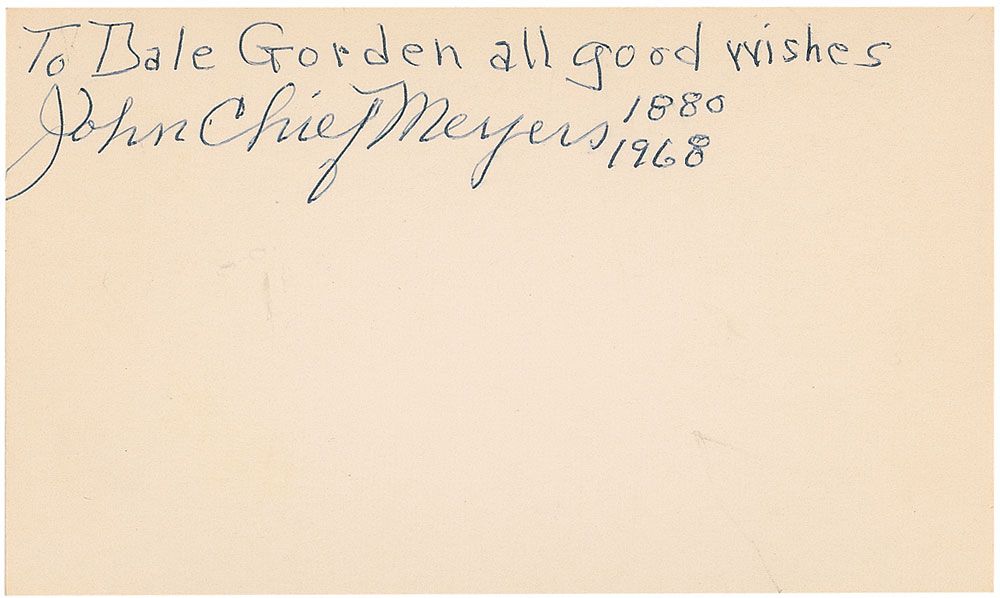 To Dale Gorden all good wishes
John Chief Meyers 1880
1968